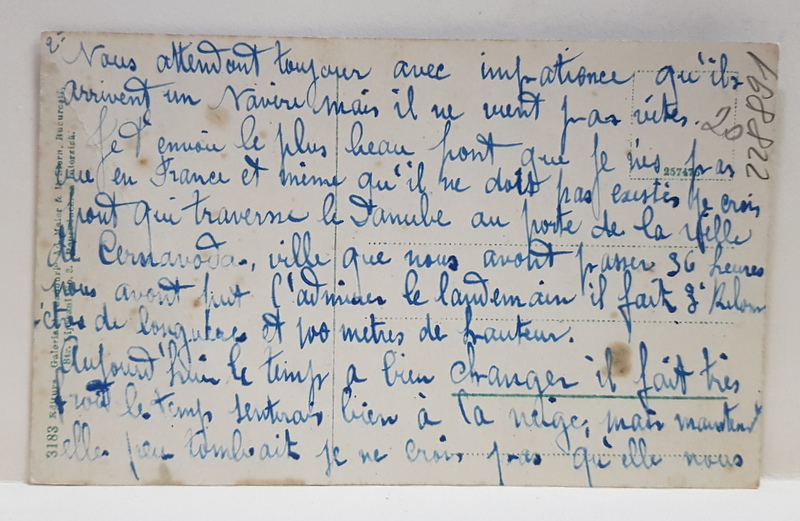 2°
Nous attendont toujour avec impatience qu'ils
arrivent un Navire mais il ne vient pas vites.
Je t'envoie le plus beau pont que je n'es pas
vue en France et même qu'il ne doit pas existés je crois
pont qui traverse le Danube au porte de la ville
de Cernavoda, ville que nous avont passer 36 heures
nous avont put l'admirer le landemain il fait 3 Kilom
-ètres de longueur et 100 mètres de hauteur.
Aujourd'huie le temp a bien changer il fait très
froit le temp sentirais bien à la neige, mais maintent
elle peu tombait je ne crois pas qu'elle nous
20
228891
257476
3183
Bucureşti.